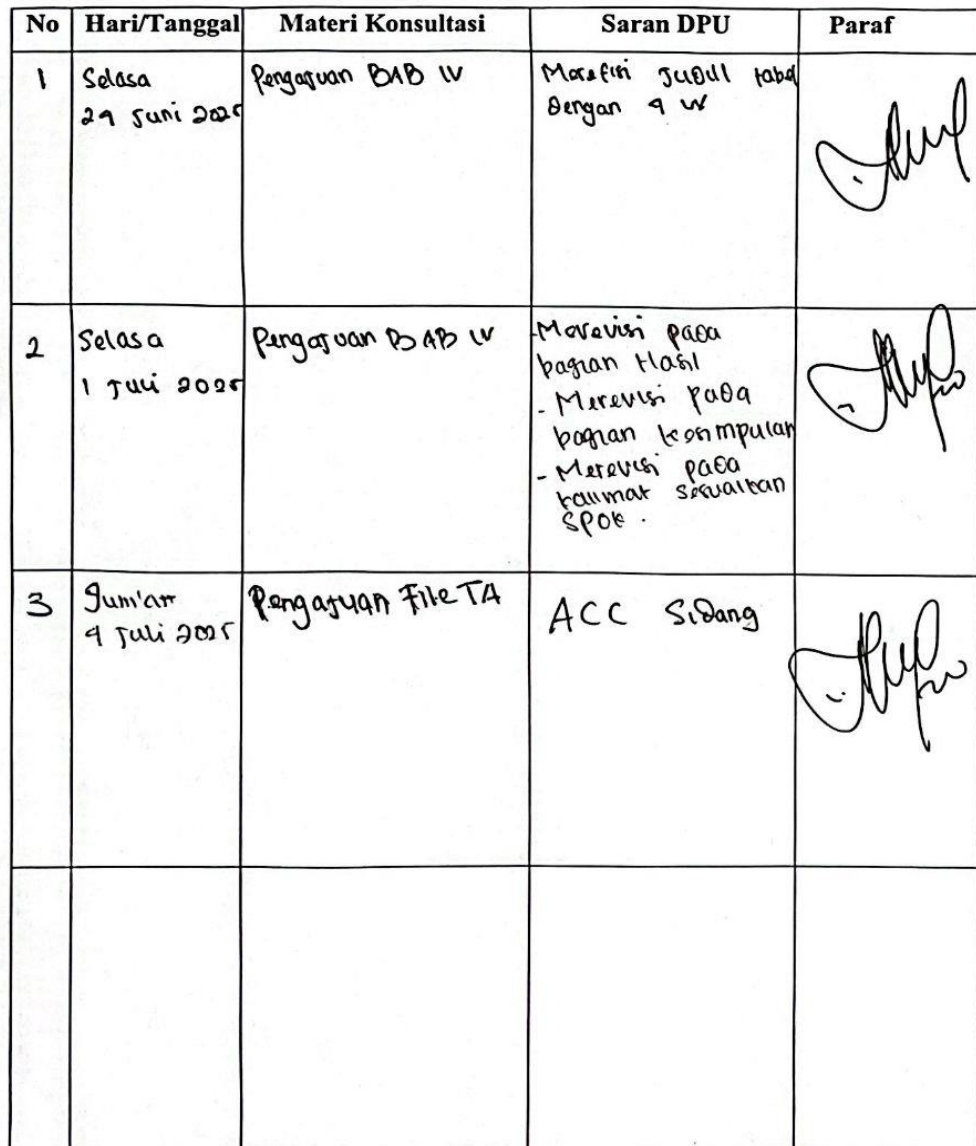 No Hari/Tanggal Materi Konsultasi Saran DPU Paraf
1 Selasa
24 Juni 2025
Pengajuan BAB IV
Merefisi Judul tabel
dengan 4 W
2 Selasa
1 Juli 2025
Pengajuan BAB IV
-Merevisi pada
bagian Hasil
- Merevisi pada
bagian kesimpulan
- Merevisi pada
kalimat sesuaikan
SPOK.
3 Jum'at
4 Juli 2025
Pengajuan File TA
ACC Sidang